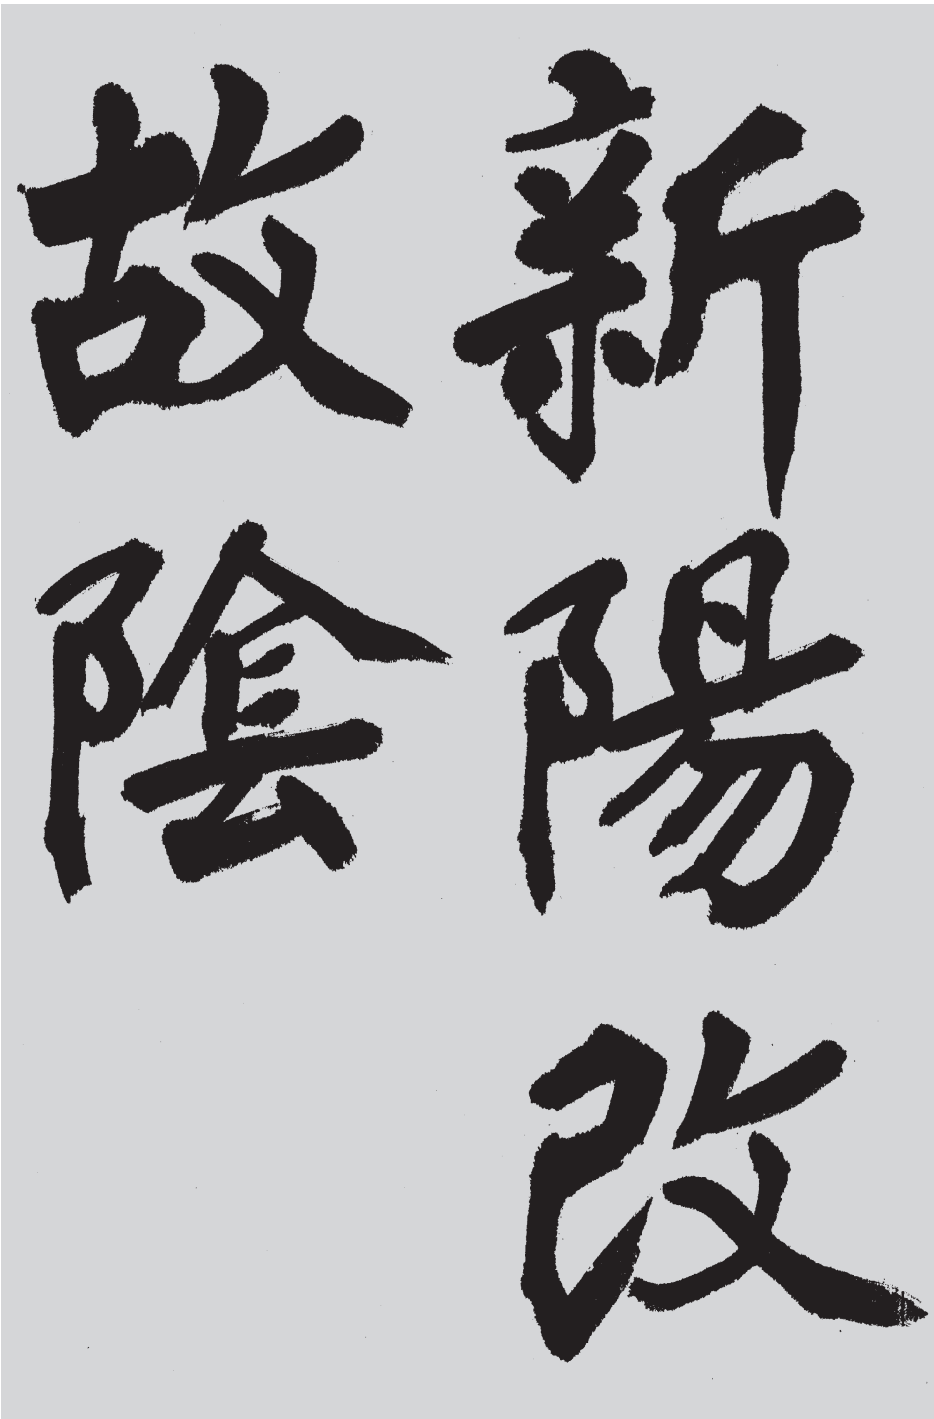 新陽改
故陰